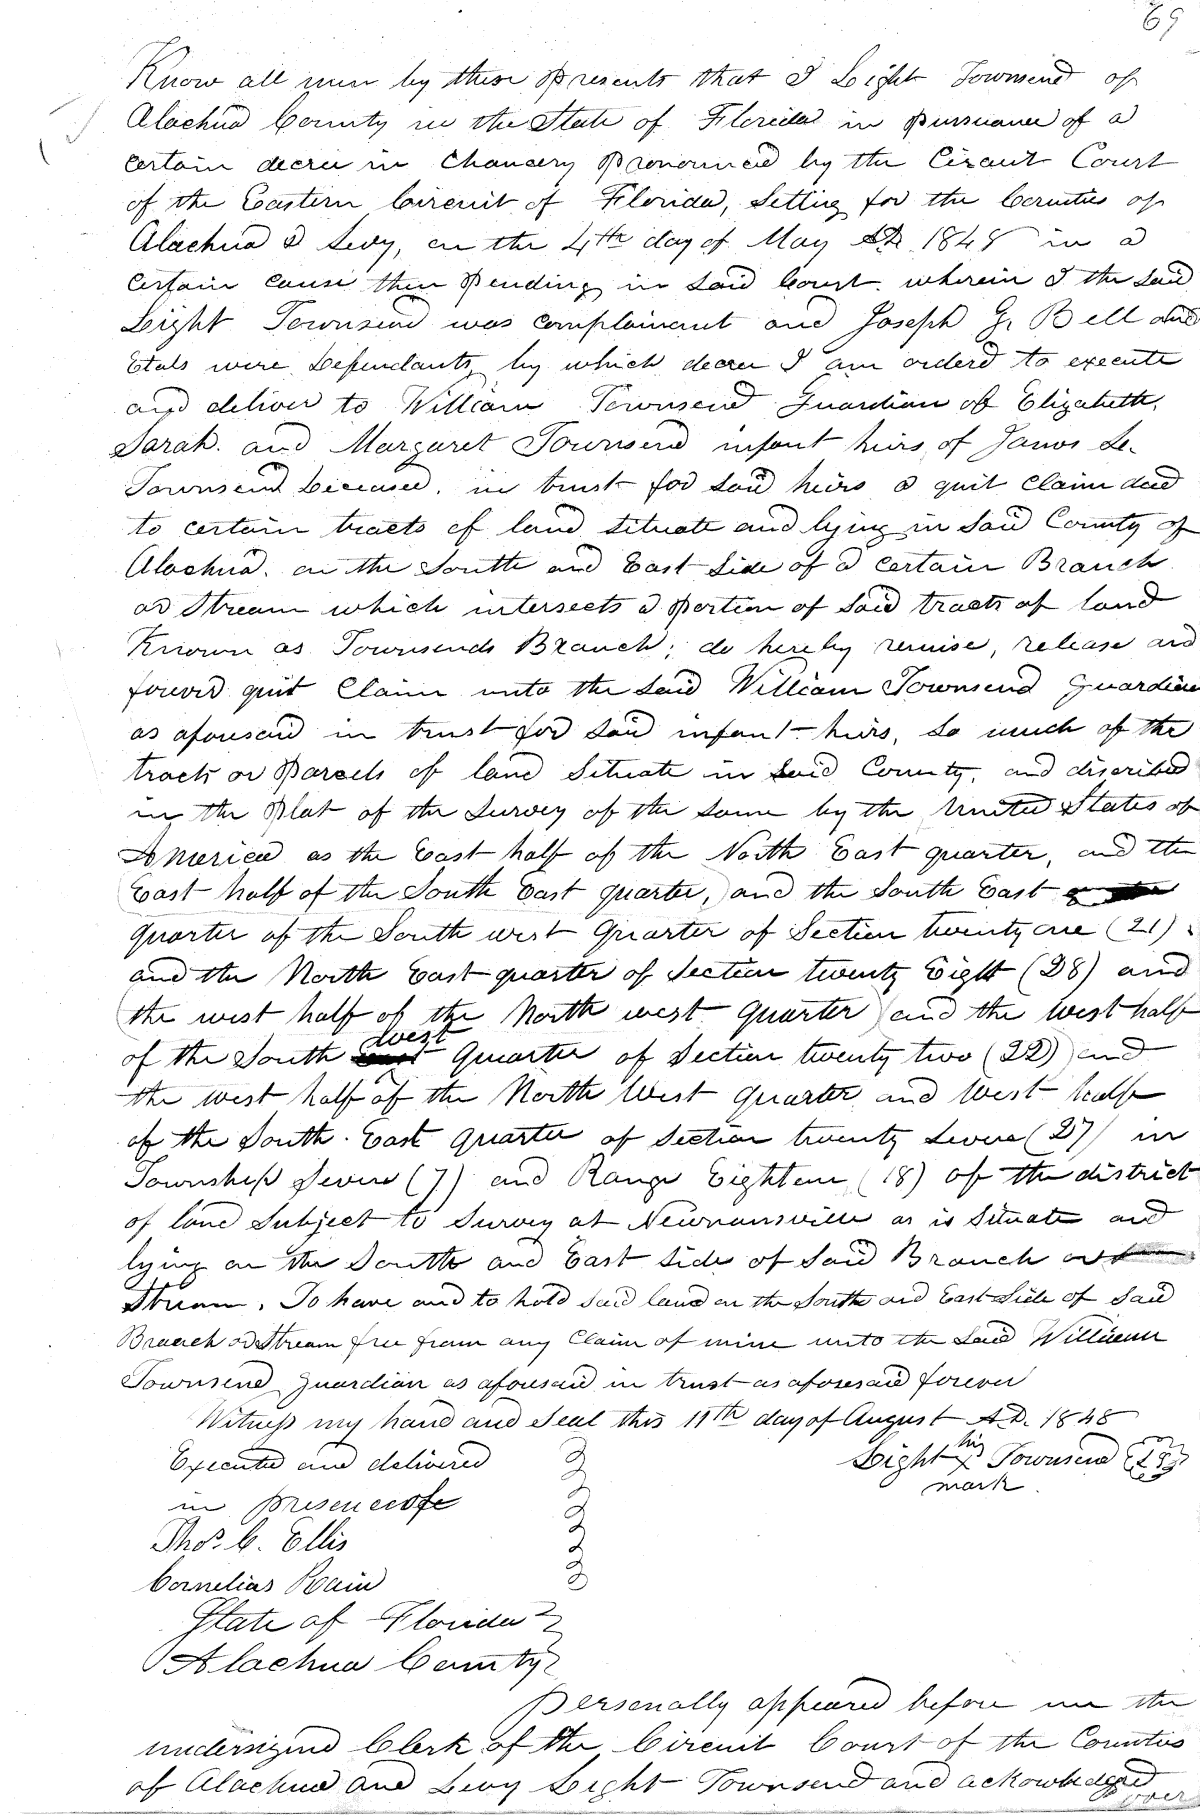 69
Know all men by these presents that I Light Townsend of
Alachua County in the State of Florida in pursuance of a
certain decree in Chancery pronounced by the Circuit Court
of the Eastern Circuit of Florida, Setting for the Counties of
Alachua & Levy, on the 4th day of May AD. 1848 in a
certain cause then pending in said Court wherein I the said
Light Townsend was complainant and Joseph G. Bell and
Etals were Defendants, by which decree I am orderd to execute
and deliver to William Townsend Guardian of Elizabeth,
Sarah. and Margaret Townsend infant heirs of
Townsend Deceased, in trust for said heirs a quit claim deed
to certain tracts of land situate and lying in said County of
Alachua. on the South and East Side of a certain Branch
or Stream which intersects a portion of said tracts of land
Known as Townsends Branch; do hereby remise, release and
forever quit Claim unto the said William Townsend Guardian
as aforesaid in trust for said infant heirs, so much of the
tracts or Parcels of land Situate in said County, and discribed
in the Plat of the Survey of the same by the United States of
America as the East half of the North East quarter, and the
East half of the South East quarter, and the South East
quarter of the South west Quarter of Section twenty one (21).
and the North East quarter of Section twenty Eight (28) and
the west half of the North west quarter and the West half
of the South West Quarter of Section twenty two (22) and
the west half of the North West quarter and West half
of the South East quarter of Section twenty Seven (27) in
Township Seven (7) and Range Eighteen (18) of the district
of land Subject to Survey at Newnansville as is Situate and
lying on the South and East side of said Branch or
Stream. To have and to hold said land on the South and East Side of said
Branch or Stream free from any Claim of mine unto the said William
Townsend, guardian as aforesaid in trust as aforesaid forever
Witness my hand and Seal this 11th day of August A.D. 1848
Executed and delivered
Light his X mark Townsend {LS}
in presence of
Thos. C. Ellis
Cornelias Rain
State of Florida
Alachua County
Personally appeared before me the
undersigned Clerk of the Circuit Court of the Counties
of Alachua and Levy Light Townsend and acknowledged
over